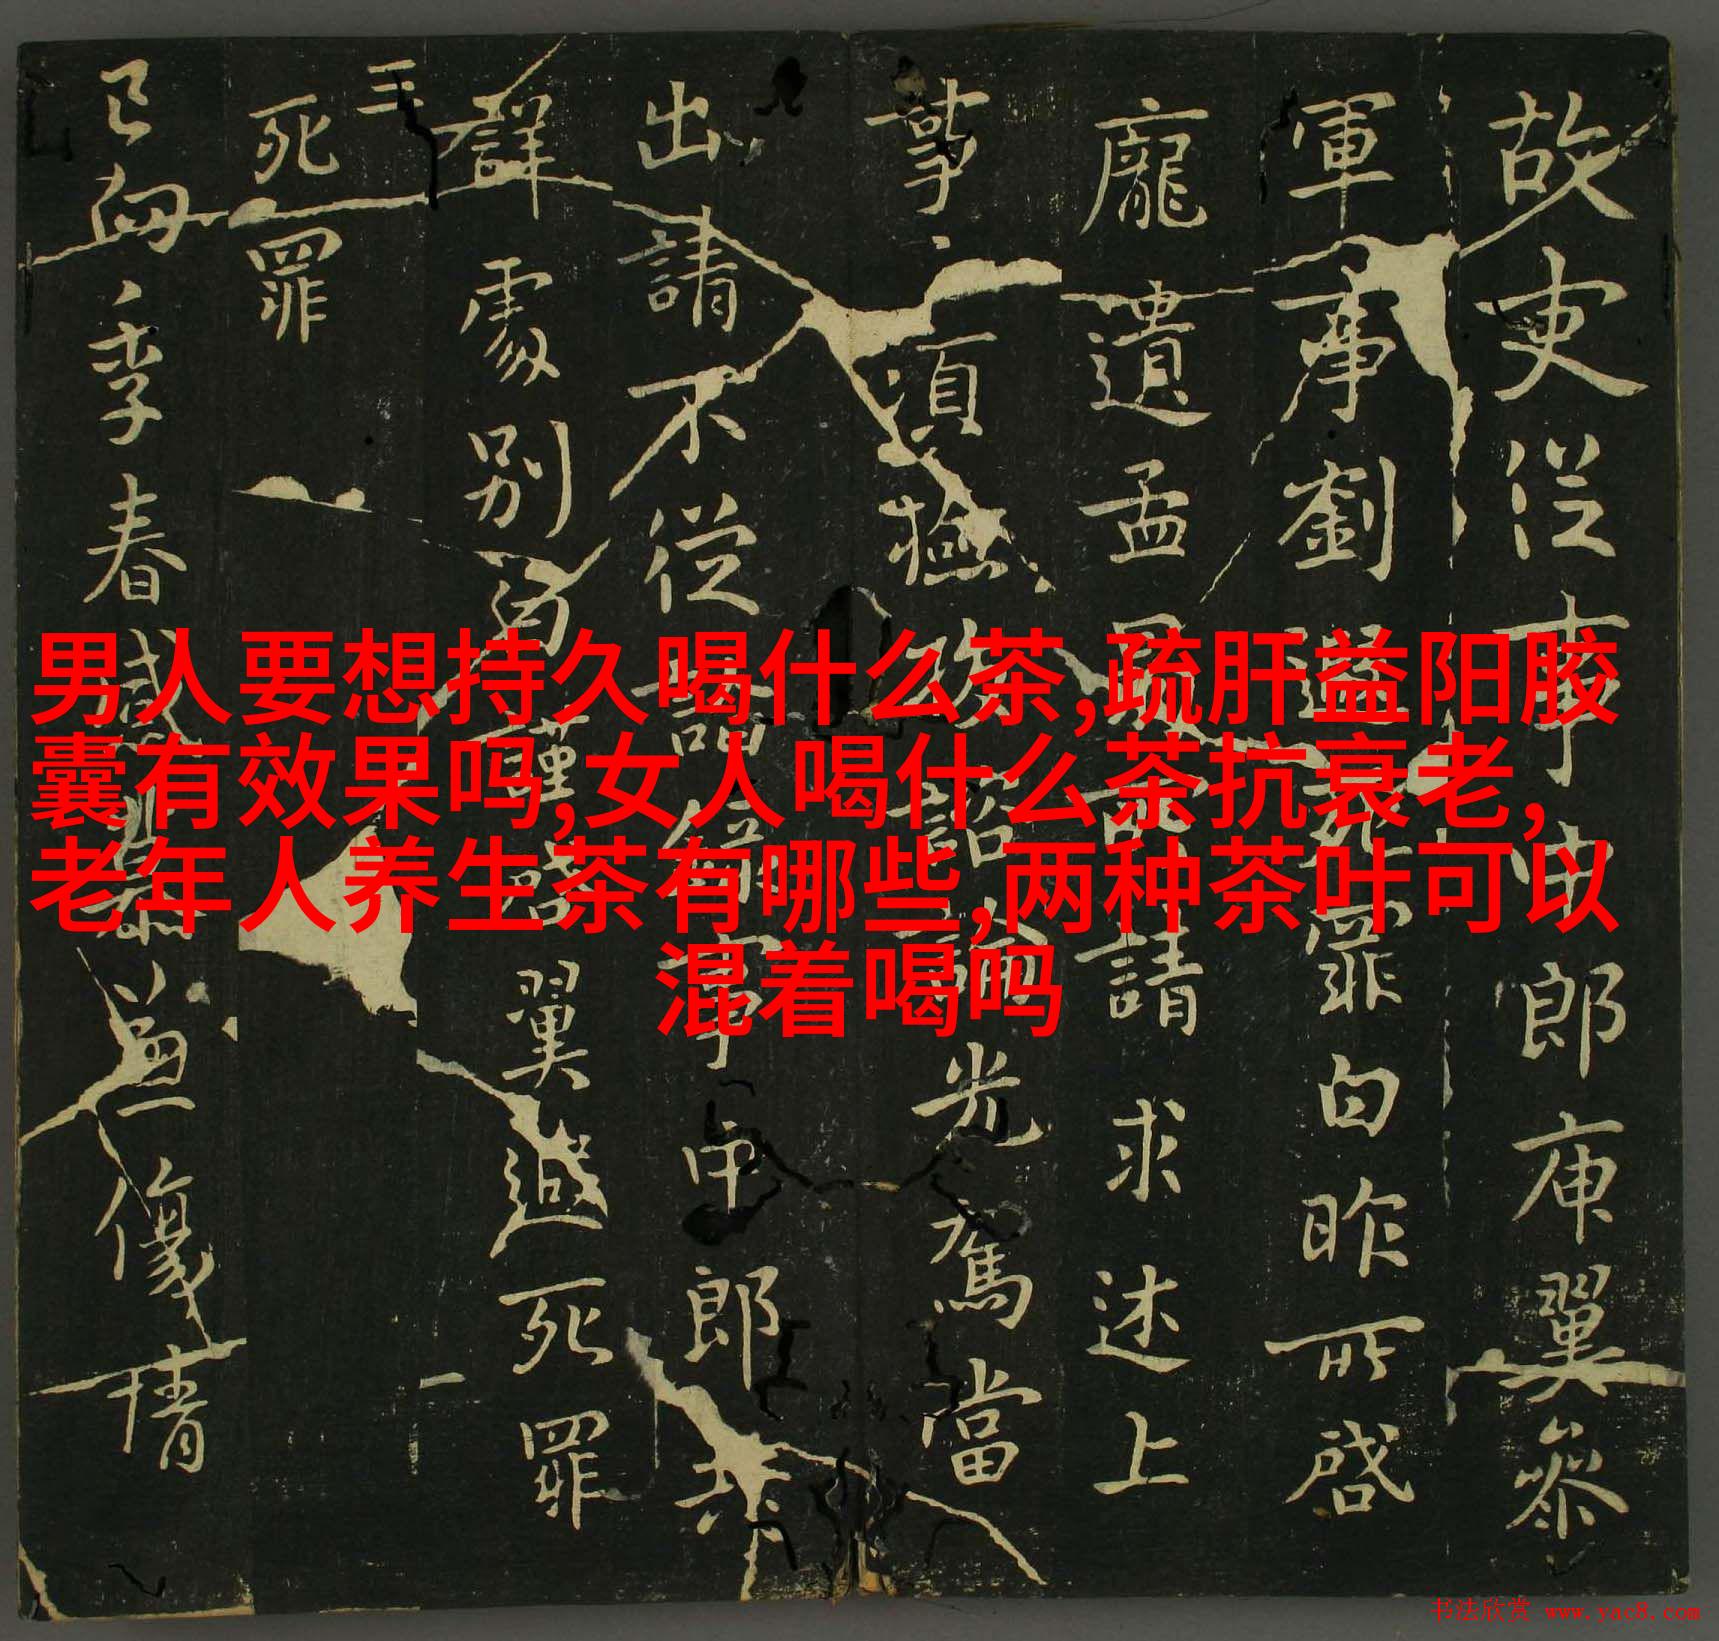 男人要想持久喝什么茶,疏肝益阳胶
囊有效果吗,女人喝什么茶抗衰老,
老年人养生茶有哪些,两种茶叶可以
混着喝吗
故吏從事中郎庾翼參
軍事劉遐死罪白昨所啓
龐遺孟請求述上
事須論光駕當
出請不從詔事中郎共
詳處別白謹啓翼遐死罪
死罪
季春
书法欣赏 www.yac8.com